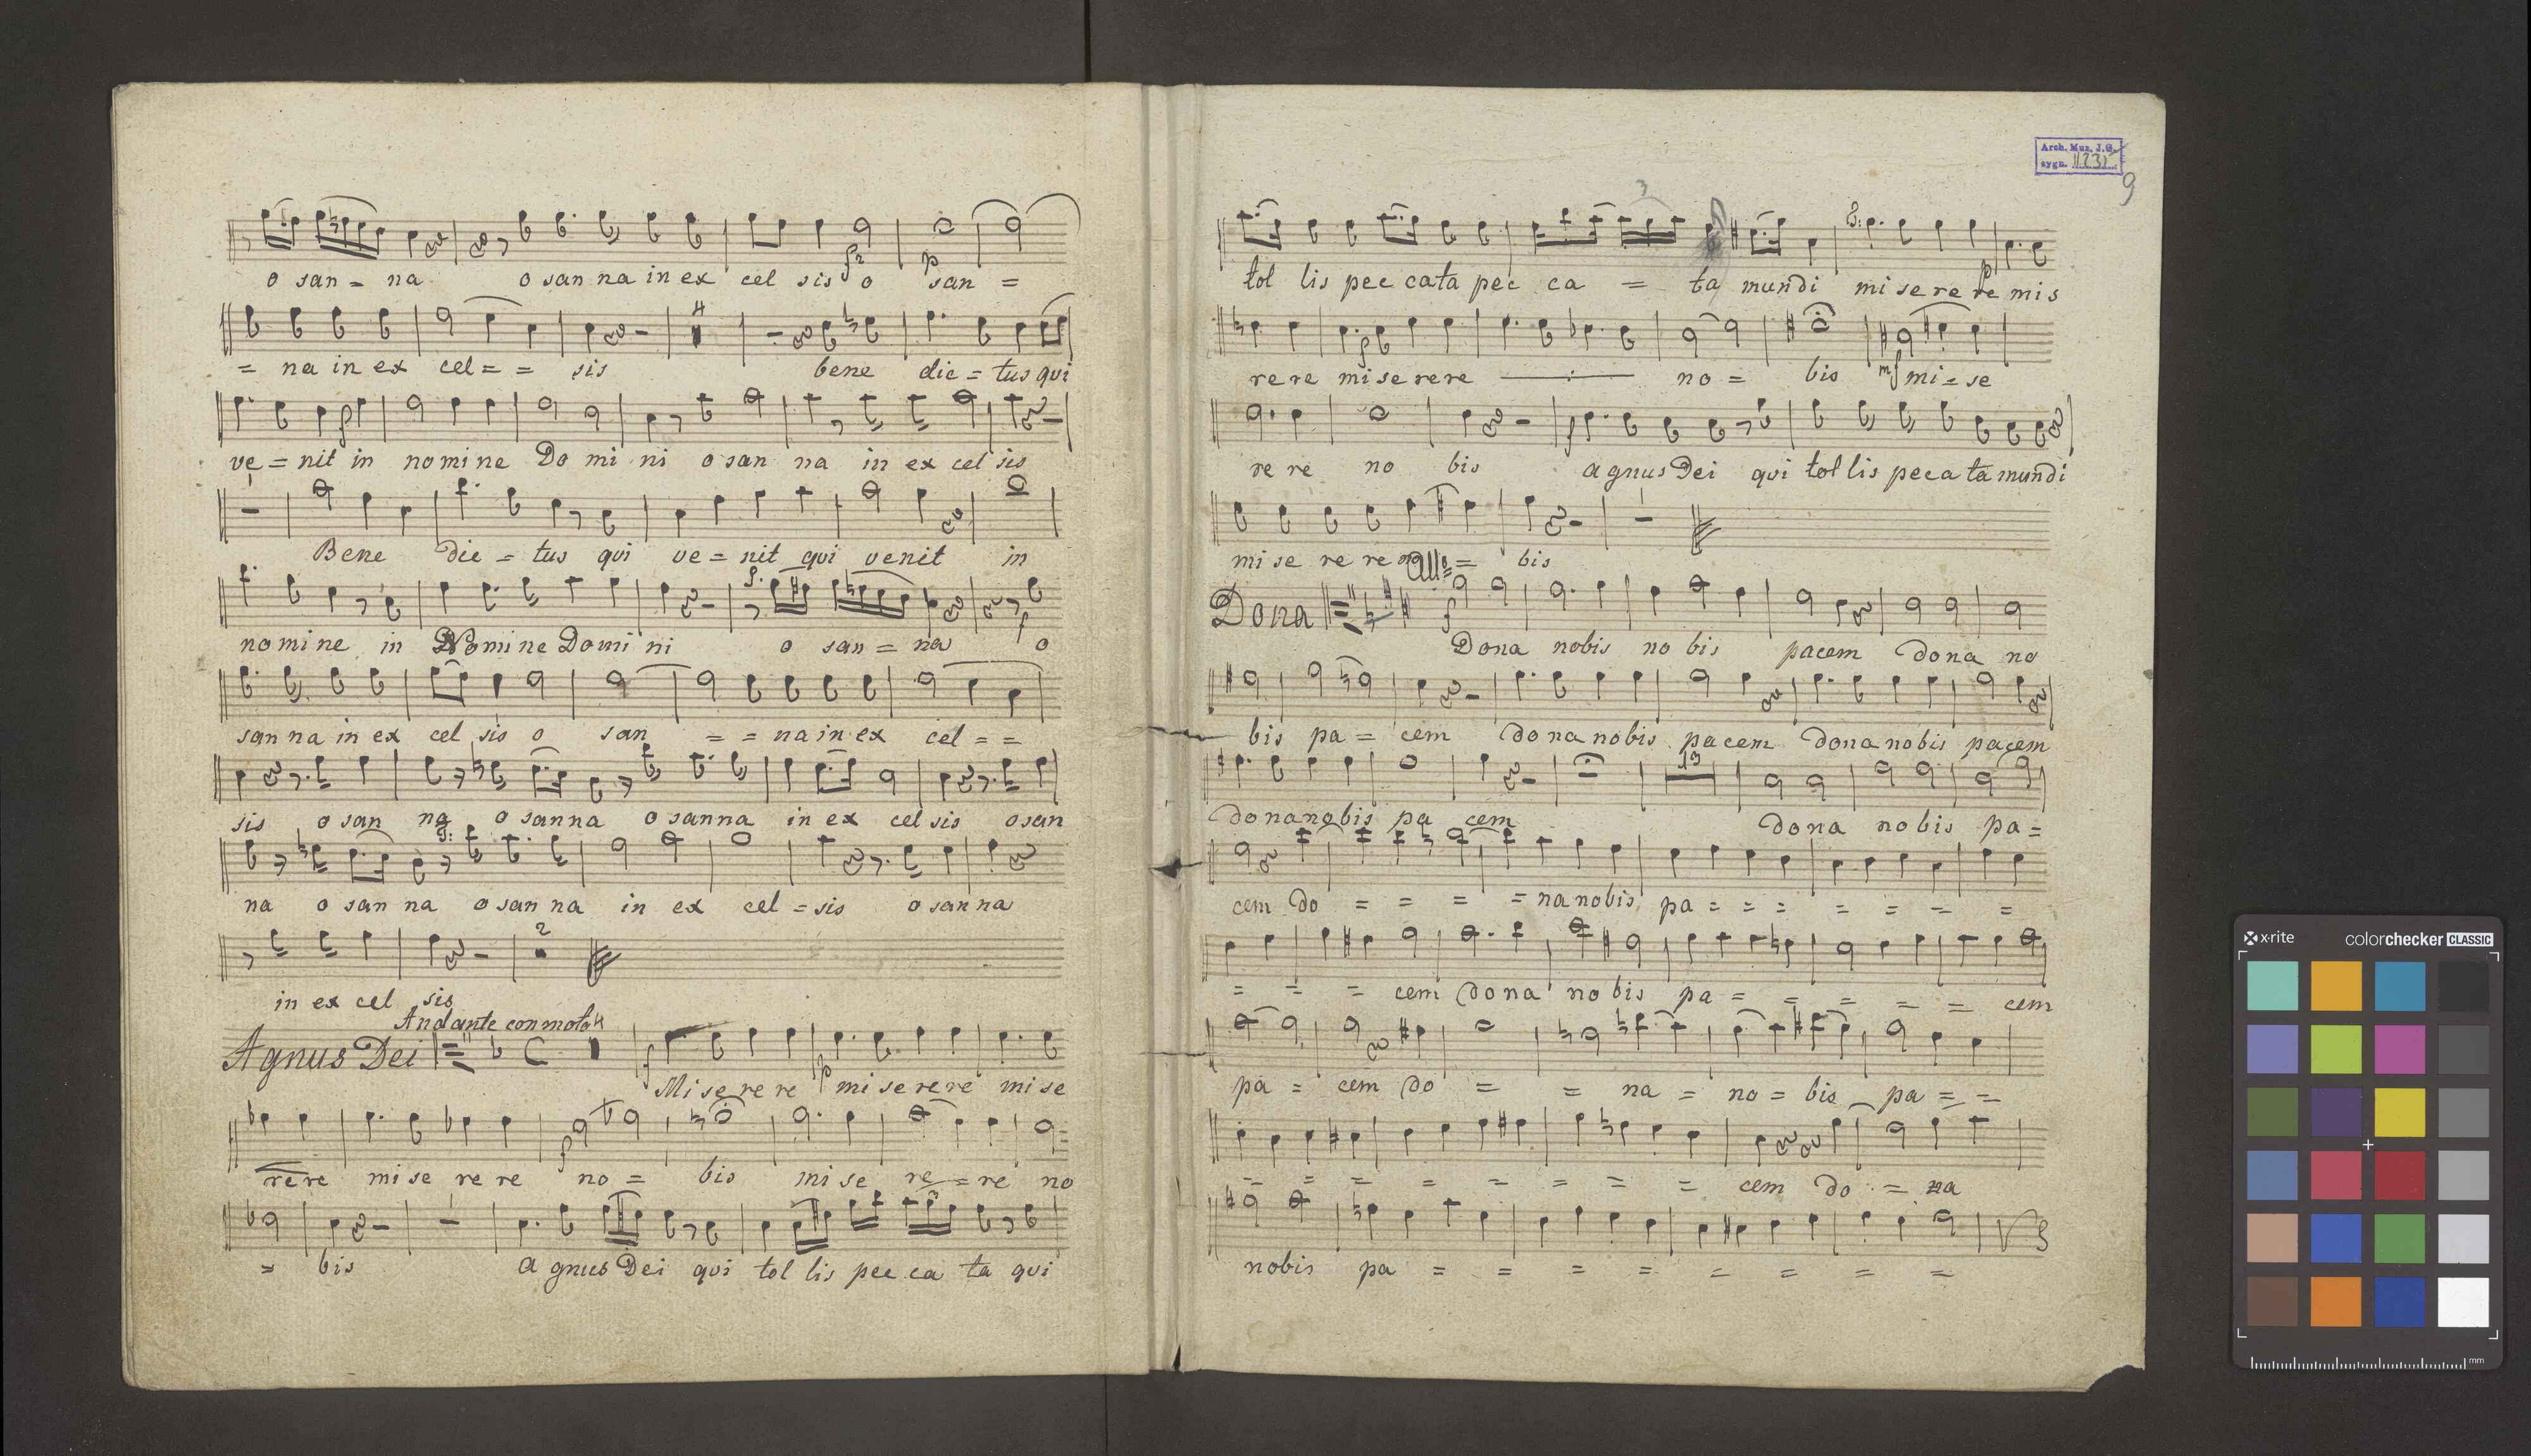 o san = na o san na in ex cel sis o san =
fz p
= na in ex cel = = sis bene dic = tus qui
4
ve = nit in nomine Do mi ni o san na in ex cel sis
Bene dic = tus qui ve = nit qui venit in
nomine in Nomine Domi ni o san = na o
san na in ex cel sis o san = = na in ex cel = =
sis o san na o sanna o sanna in ex cel sis osan
na o san na o san na in ex cel = sis o sanna
2
in ex cel sis
Andante con moto 4
Agnus Dei
Mi se re re mi se re re mi se
re re mi se re re no = bis mi se re = re no
= bis a gnus Dei qui tol lis pec ca ta qui
Arch. Muz. J.G.
sygn.
9
3
tol lis pec cata pec ca = ta mundi mi se re re mis
re re mi se re re no = bis mf mi = se
re re no bis a gnus Dei qui tol lis peca ta mundi
mi se re re no = bis
All:
Dona
Dona nobis no bis pacem dona no
bis pa = cem do na nobis pacem dona nobis pacem
13
dona nobis pa cem dona nobis pa =
cem do = = = = na nobis pa = = = = = = =
= = = cem dona nobis pa = = = = = cem
pa = cem do = = na = no = bis pa = =
= = = = = = = cem do = na
nobis pa = = = = = = = =
VS
x-rite colorchecker CLASSIC
mm